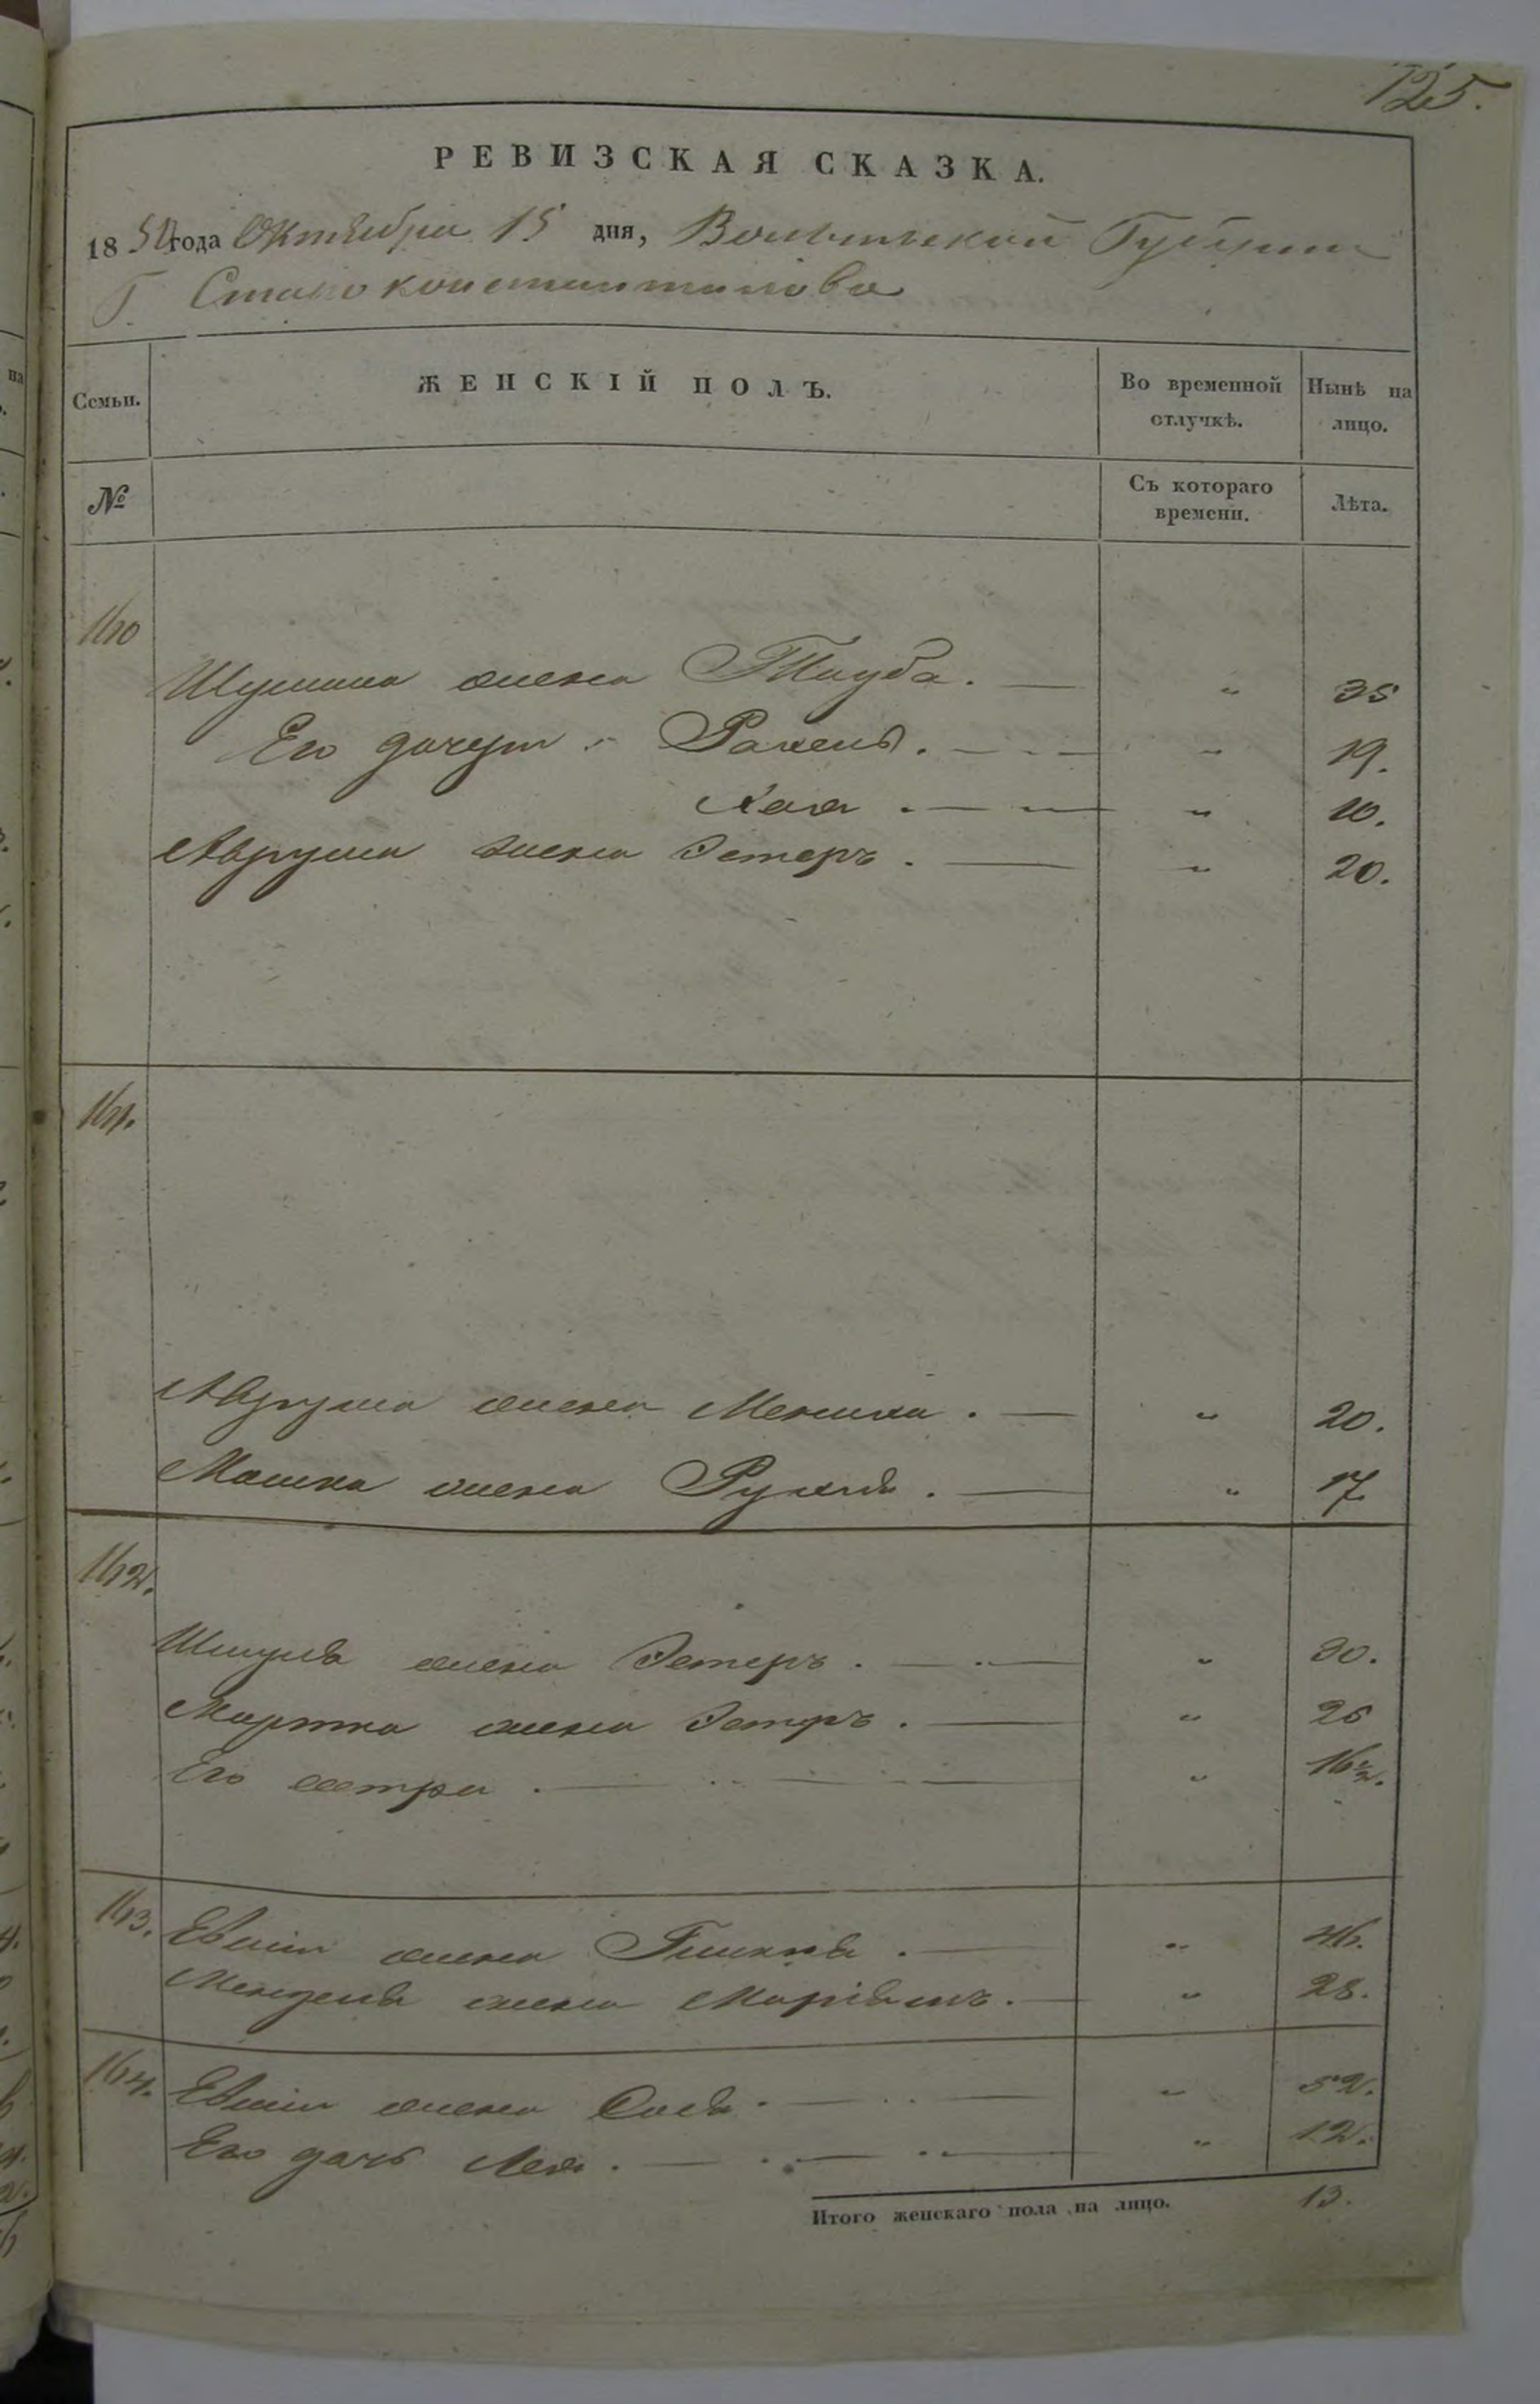 125.
РЕВИЗСКАЯ СКАЗКА.
1850 года Октября 15 дня, Волынской Губернии
Г. Староконстантинова
Семьи.
ЖЕНСКІЙ ПОЛЪ.
Во временной отлучкѣ.
Нынѣ на лицо.
№
Съ котораго времени.
Лѣта.
160
жена Тауба. — " 35
Его дочери: Рахель. — " 19.
Хая. — " 10.
Аврума жена Эстеръ. — " 20.
161.
Аврума жена — " 20.
Мошка жена Рухля. — " 17
162.
Шмуля жена Эстеръ. — " 30.
жена Эстеръ. — " 25
Его сестра. — " 16½.
163.
жена — " 46.
Менделя жена Маріямъ. — " 28.
164.
жена Сося. — " 52.
Его дочь Лея. — " 12.
Итого женскаго пола на лицо. 13.